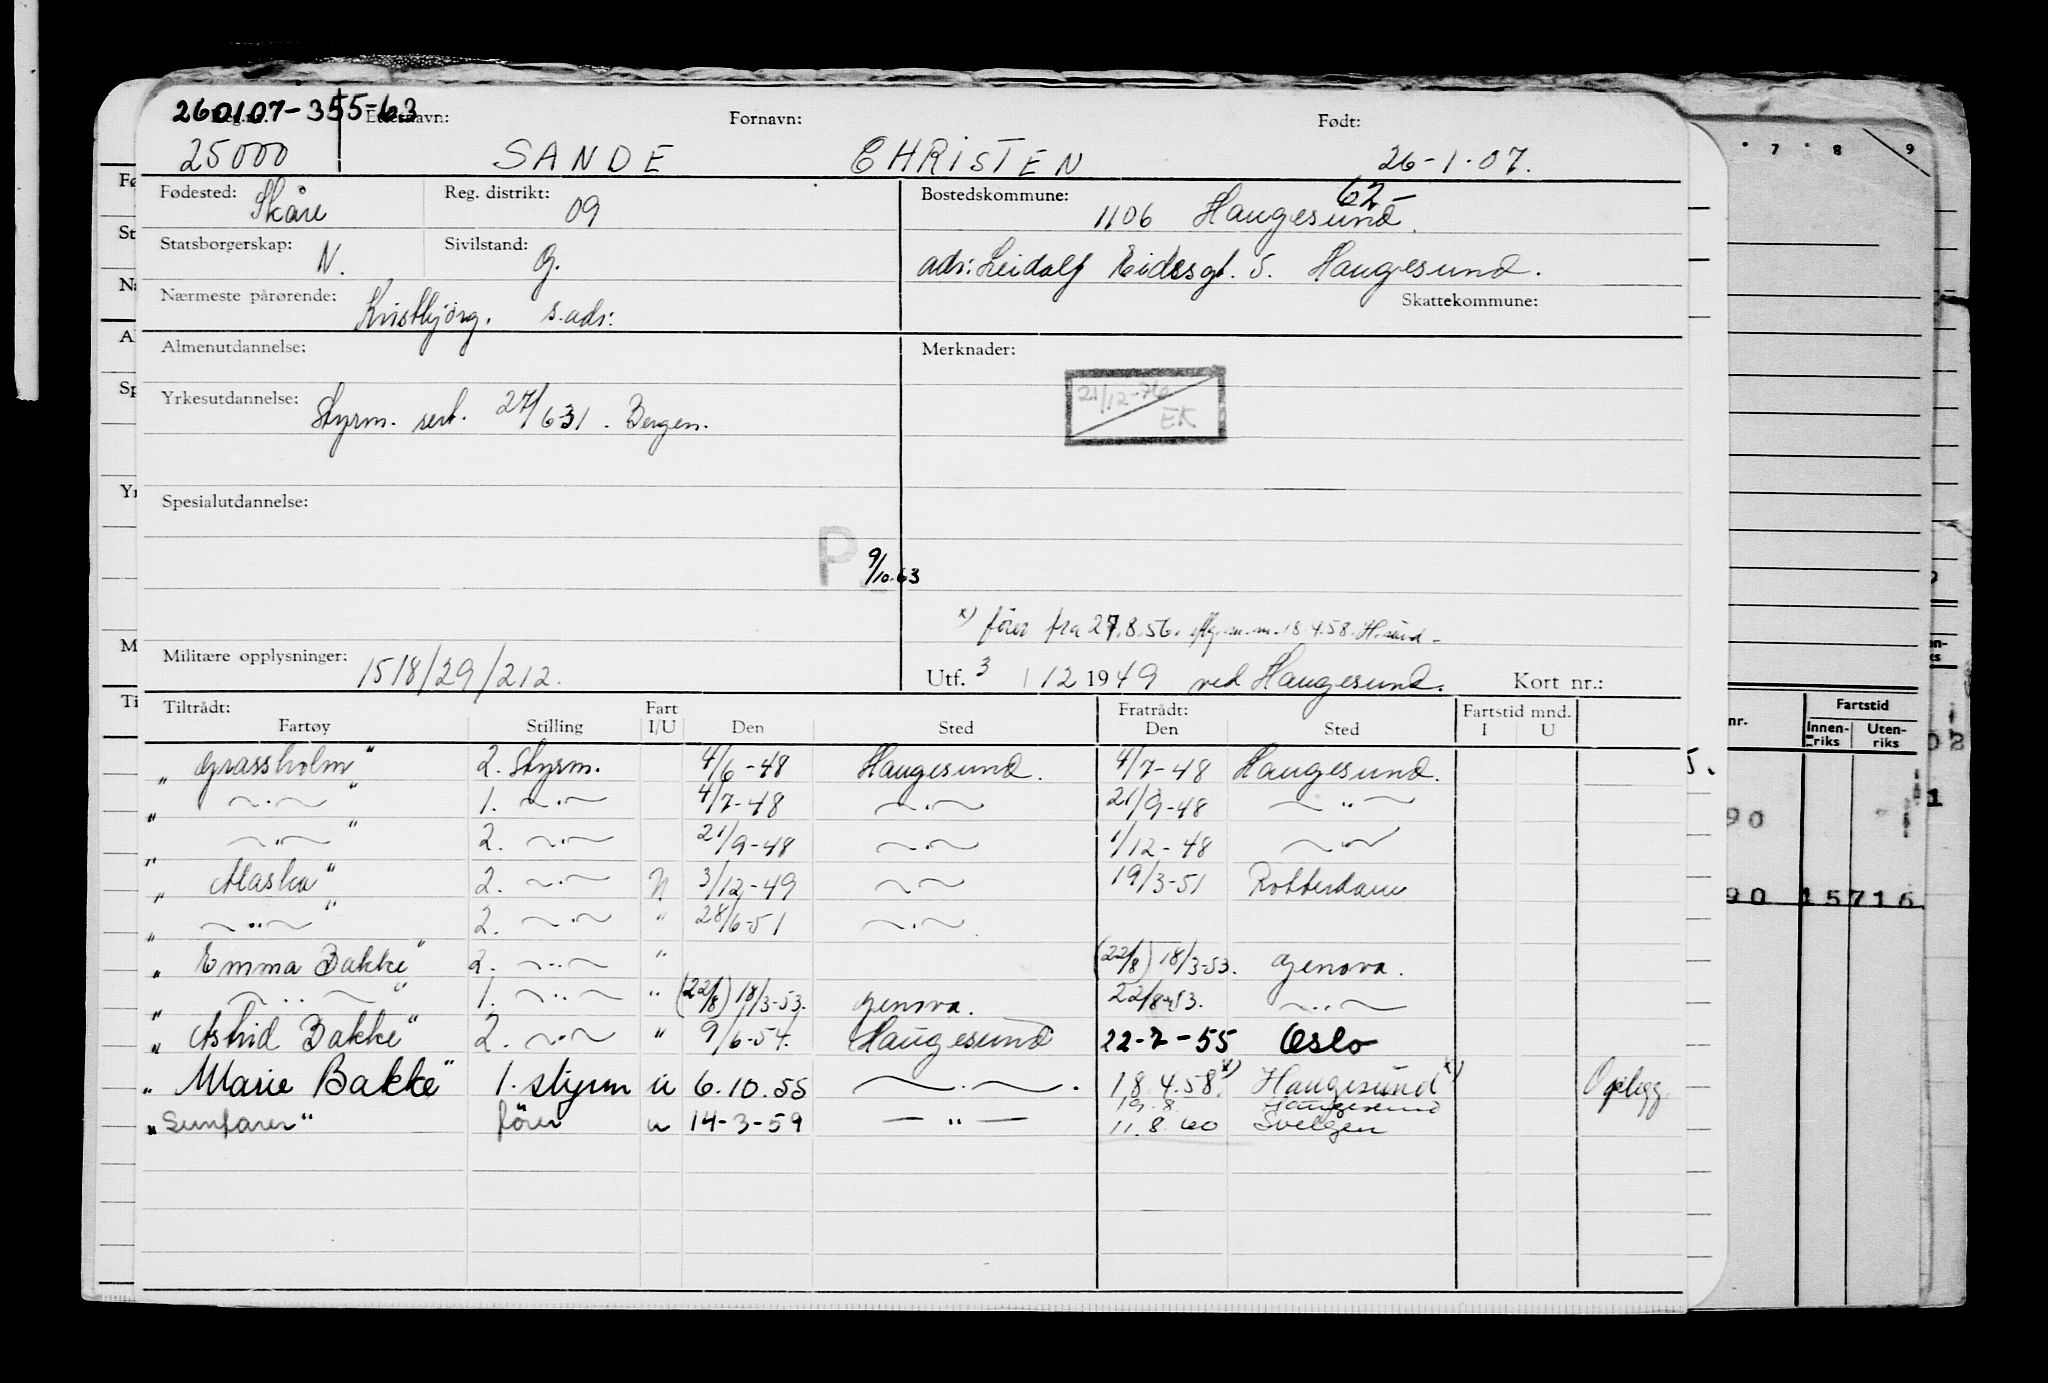 260107-355-63
Etternavn: Fornavn: Født:
25000 SANDE CHRISTEN 26-1-07.
Fødested: Skåre Reg. distrikt: 09 Bostedskommune: 62-
1106 Haugesund.
Statsborgerskap: N. Sivilstand: G.
adr: Leidolf Eidesgt. 5. Haugesund.
Nærmeste pårørende: Kristbjörg. s. adr: Skattekommune:
Almenutdannelse: Merknader:
21/12-76 EK
Yrkesutdannelse: Styrm. sert. 27/6 31. Bergen.
Spesialutdannelse:
P 9/10.63
x) förer fra 27.8.56. m.m. 18.4.58. H.sund-
Militære opplysninger: 1518/29/212.
Utf. 3 / 12 1949 ved Haugesund. Kort nr.:
Tiltrådt: Fart Fratrådt: Fartstid mnd.
Fartøy Stilling I/U Den Sted Den Sted I U
"Grassholm" 2. Styrm. 4/6-48 Haugesund. 4/7-48 Haugesund.
" ~.~ " 1. ~.~ 4/7-48 ~.~ 21/9-48 ~"~
" ~.~ " 2. ~.~ 21/9-48 ~.~ 1/12-48 ~"~
"Alaska" 2. ~.~ N 3/12-49 ~.~ 19/3-51 Rotterdam
" ~..~ " 2. ~.~ " 28/6-51 ~.~
"Emma Bakke" 2. ~..~ " (22/8) 18/3-53. Genova.
" ~..~ " 1. ~..~ " (22/8) 18/3-53. Genova. 22/8-53. ~..~
"Astrid Bakke" 2. ~.~ " 9/6-54. Haugesund 22-7-55 Oslo
"Marie Bakke" 1. styrm u 6.10.55 ~.~. 18.4.58. x) Haugesund x) Opplegg.
19.8 Haugesund
"Sunfarer" förer u 14-3-59 — " — 11.8.60 Svelgen
7 8 9
Fartstid
nr. Innen-riks Uten-riks
90
90 15716